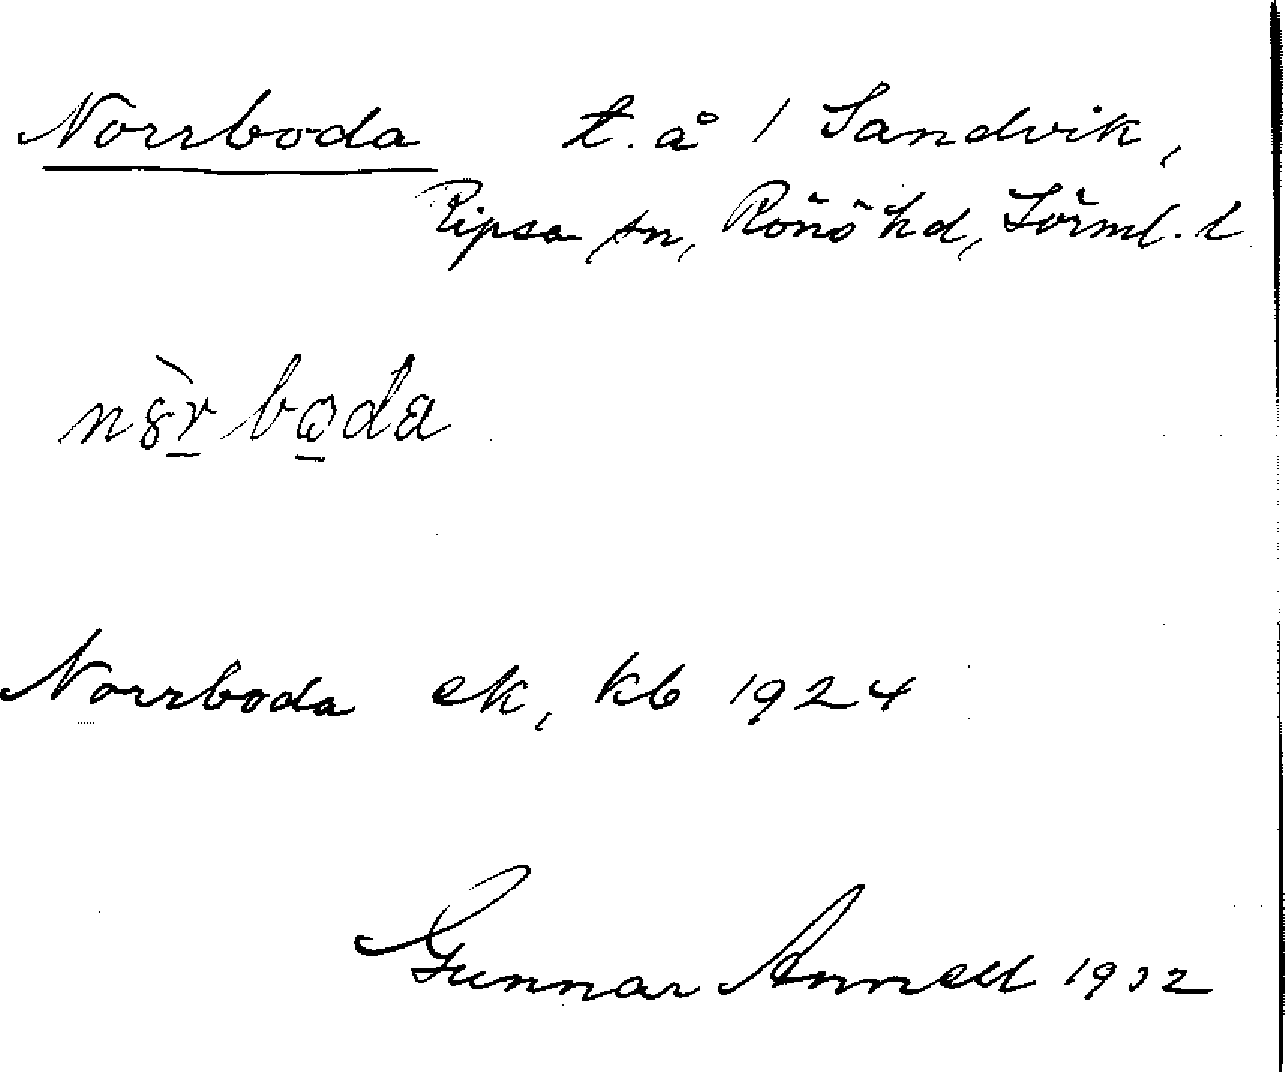 Norrboda t. å / Sandvik,
Ripsa sn, Rönö hd, Sörml. l
Norrboda ek, kb 1924
Gunnar Annell 1932